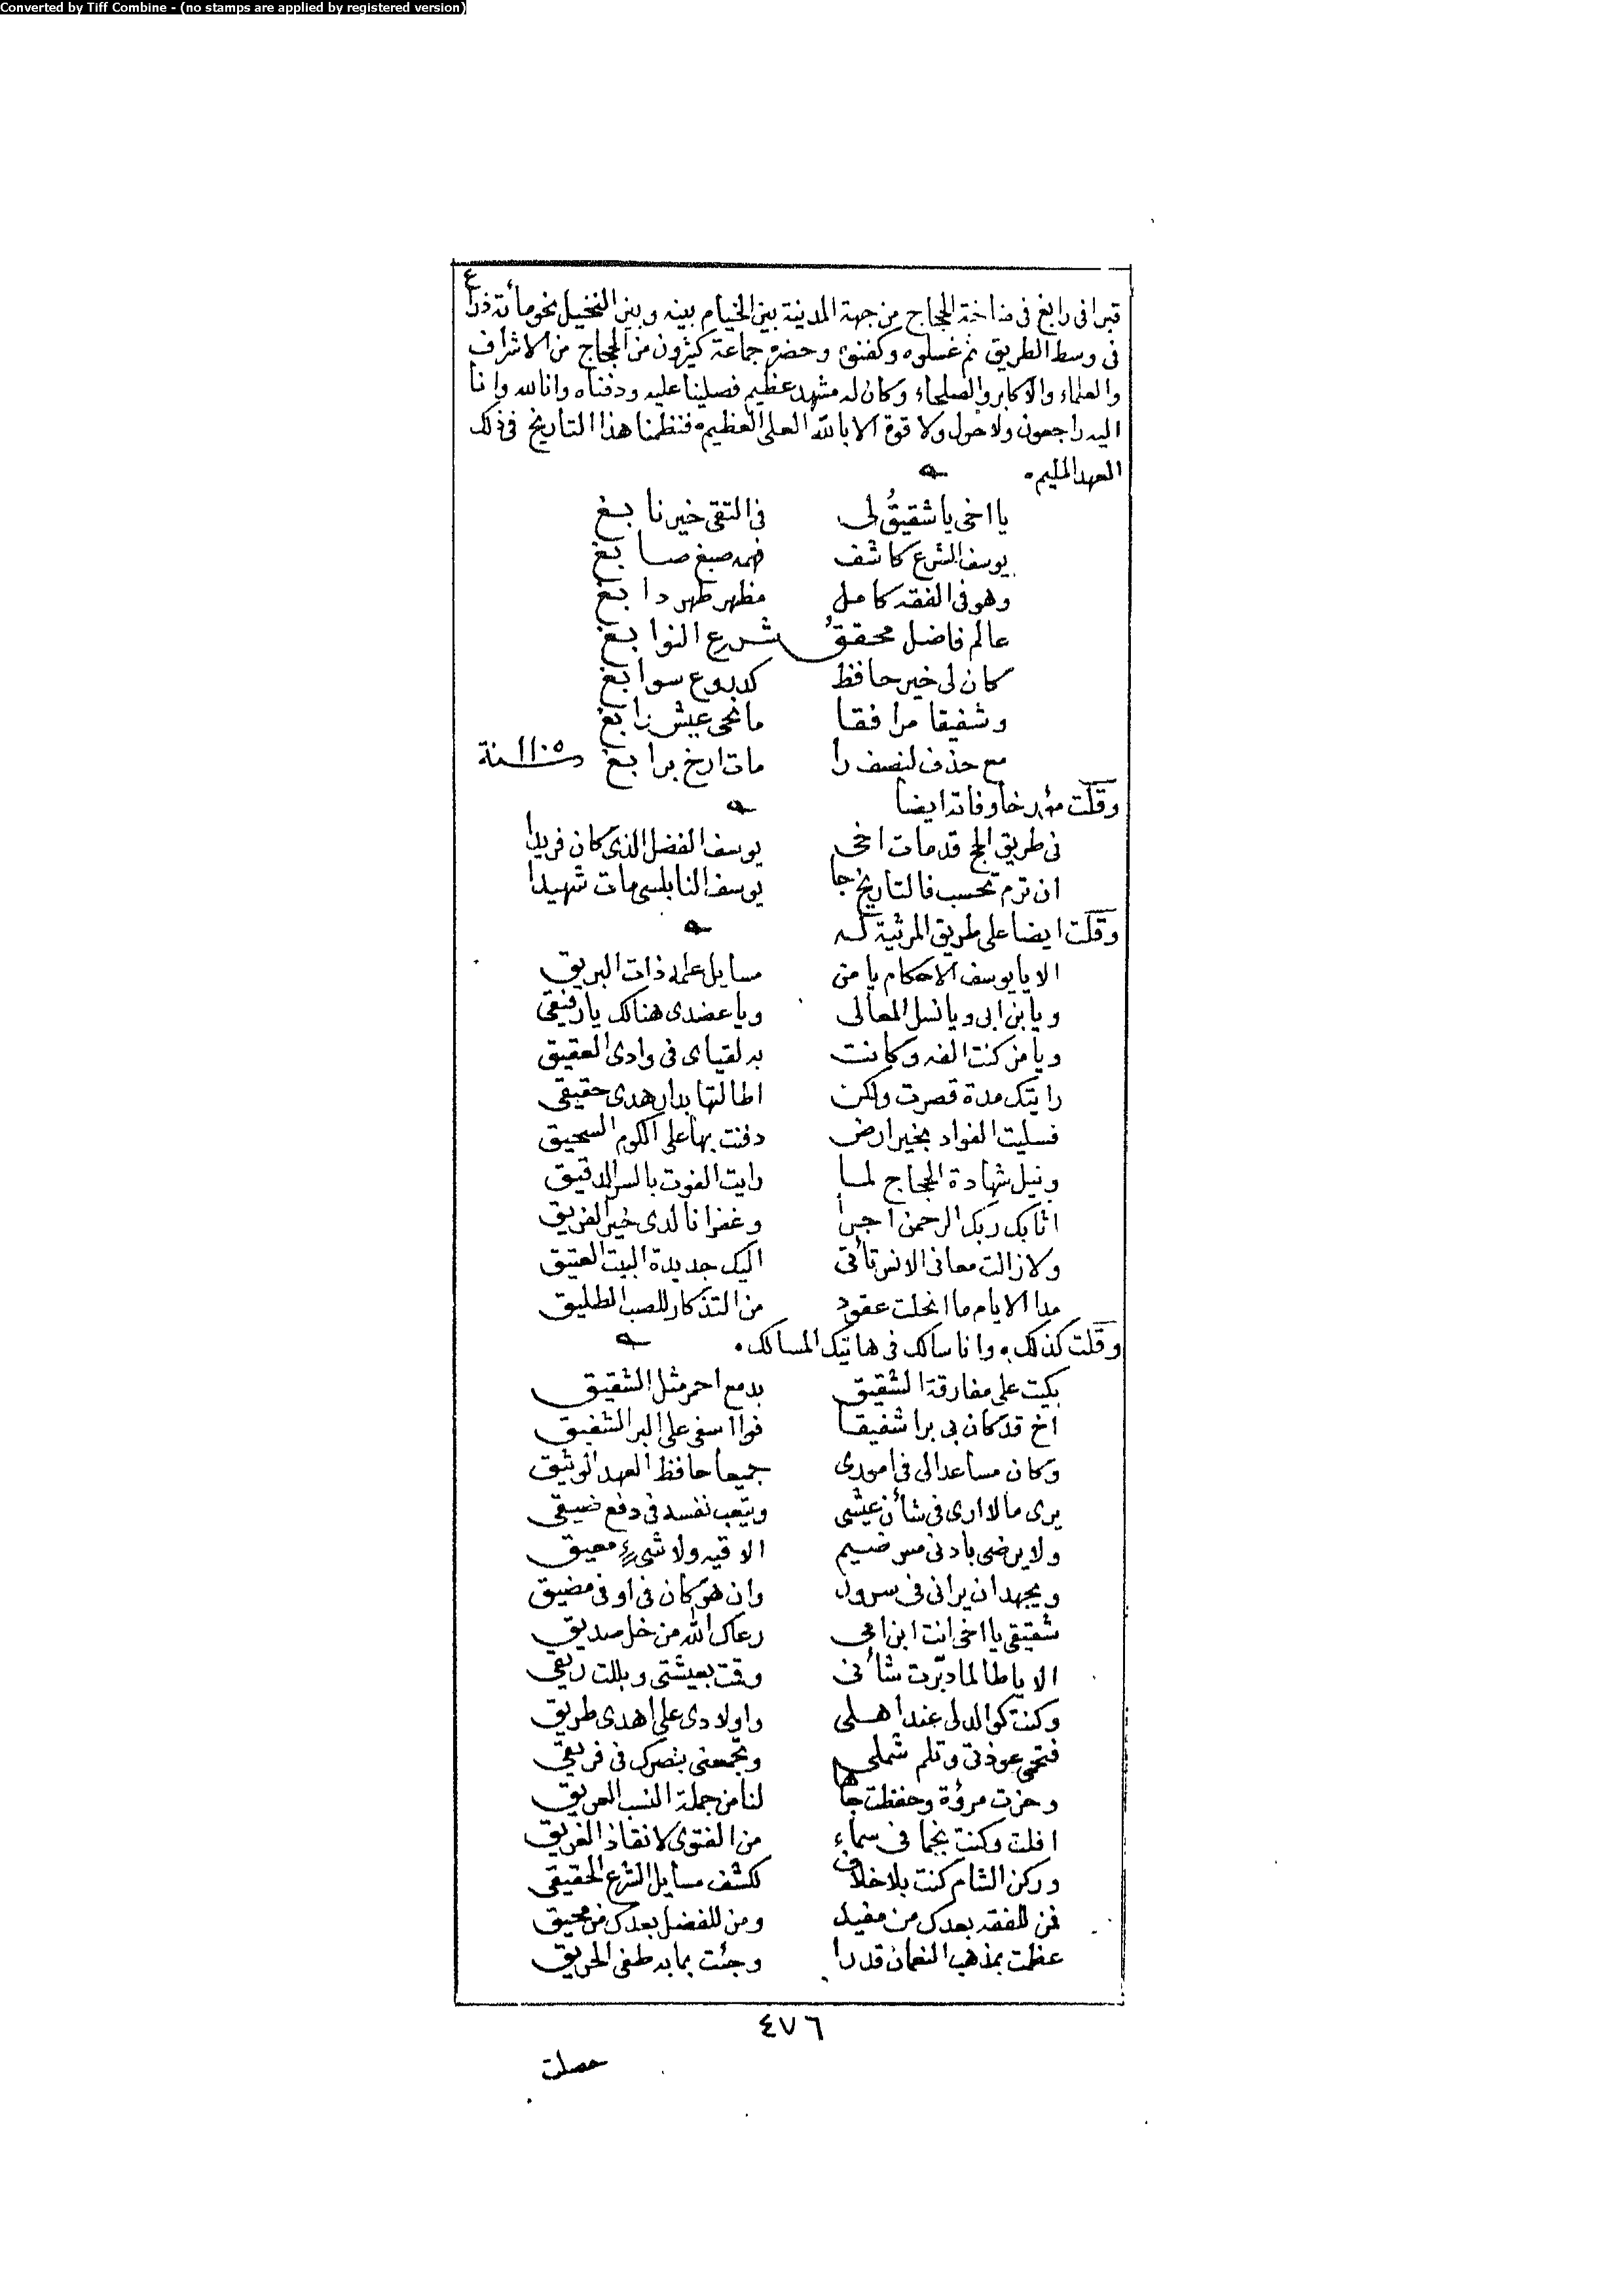 Converted by Tiff Combine - (no stamps are applied by registered version)
قبرا فى رابغ فى مناخة الحجاج من جهة المدينة بين الخيام بينه وبين النخيل نحو مأتة ذراع
فى وسط الطريق ثم غسلوه وكفنوه وحضره جماعة كثيرون من الحجاج من الاشراف
والعلماء والاكابر والصلحاء وكان له مشهد عظيم فصلينا عليه ودفناه وانا لله وانا
اليه راجعون ولا حول ولا قوة الا بالله العلى العظيم فنظمنا هذا التاريخ فى ذلك
العهد المليم
يا اخى يا شقيقُ لى فى التقى خير نابغ
يوسف الشرع كاشف فهمه صبغ صابغ
وهو فى الفقه كامل مظهر طهر دابغ
عالم فاضل محققُ شرع النوابغ
كان لى خير حافظ كدروع سوابغ
وشفيقا مرافقا ما نحى عيش زابغ
مع حذف لنصف را مات ارخ برابغ سنة ١١٠٥
وقلت مؤرخا وفاته ايضا
فى طريق الحج قد مات اخى يوسف الفضل الذى كان فريدا
ان ترم تحسب فالتاريخ جا يوسف النابلسى مات شهيدا
وقلت ايضا على طريق المرثية له
الا يا يوسف الاحكام يا من مسايل علمه ذات البريق
ويا بن ابى ويا نسل المعالى ويا عضدى هنالك يا رفيقى
ويا من كنت الفه وكانت به لقياى فى وادى العقيق
رايتك مدة قصرت ولكن اطالتها بدار هدى حقيقى
فسليت الفواد بخير ارض دفنت بها على الكوم السحيق
ونيل شهادة الحجاج لما رايت الفوت بالسر الدقيق
اثابك ربك الرحمن اجرا وغفرانا لدى خير الفريق
ولا زالت معانى الانس تأتى اليك جديدة البيت العتيق
مدا الايام ما انحلت عقود من التذكار للصب الطليق
وقلت كذلك وانا سالك فى هاتيك المسالك
بكيت على مفارقة الشقيق بدمع احمر مثل الشقيق
اخ قد كان بى برا شفيقا فوا اسفى على البر الشفيق
وكان مساعدا لى فى امورى جميعا حافظ العهد الوثيق
يرى ما لا ارى فى شأن عيشى ويتعب نفسه فى دفع ضيقى
ولا يرضى بادنى مس ضيم الاقيه ولا شىء معيق
ويجهد ان يرانى فى سرور وان هو كان فى اوفى مضيق
شقيقى يا اخى انت ابن امى رعاك الله من خل صديق
الا يا طالما دبّرت شأنى وقت بعيشتى وبللت ريقى
وكنت كوالد لى عند اهلى واولادى على اهدى طريق
فتحمى عوذتى وتلم شملى وتجمعنى بنصرك فى فريقى
وحزت مروءة وحفظت جاها لنا من جملة النسب العريق
افلت وكنت نجما فى سماء من الفتوى لانقاذ الغريق
وركن الشام كنت بلا خلاف لكشف مسايل الشرع الحقيقى
فمن للفقه بعدك من مفيد ومن للفضل بعدك من محيق
عظمت بمذهب النعمان قدرا وجئت بما به طفى الحريق
٤٧٦
حصلت